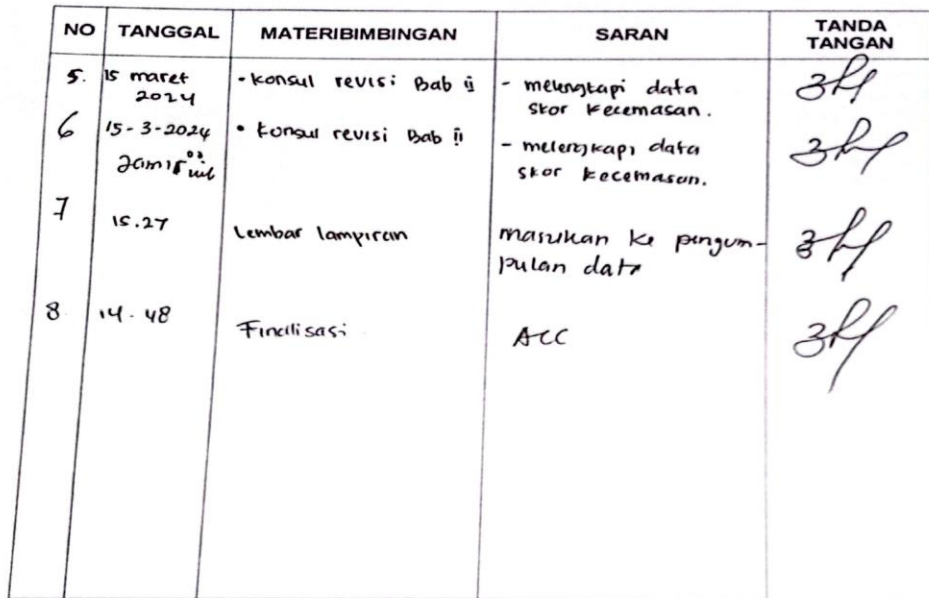 NO TANGGAL MATERIBIMBINGAN SARAN TANDA TANGAN
5. 15 maret 2024 - konsul revisi Bab ii - melengkapi data skor kecemasan.
6 15-3-2024 • konsul revisi Bab ii - melengkapi data skor kecemasan.
7 15.27 Lembar lampiran masukan ke pengum-
pulan data
8. 14.48 Finalisasi ACC